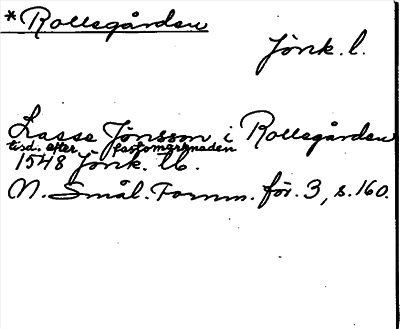 *Rollsgården
Jönk. l.
Lasse Jönsson i Rollsgården
tisd. efter fastomgrgnaden
1548 Jönk. tb.
N. Smål. Fornm. för. 3, s. 160.